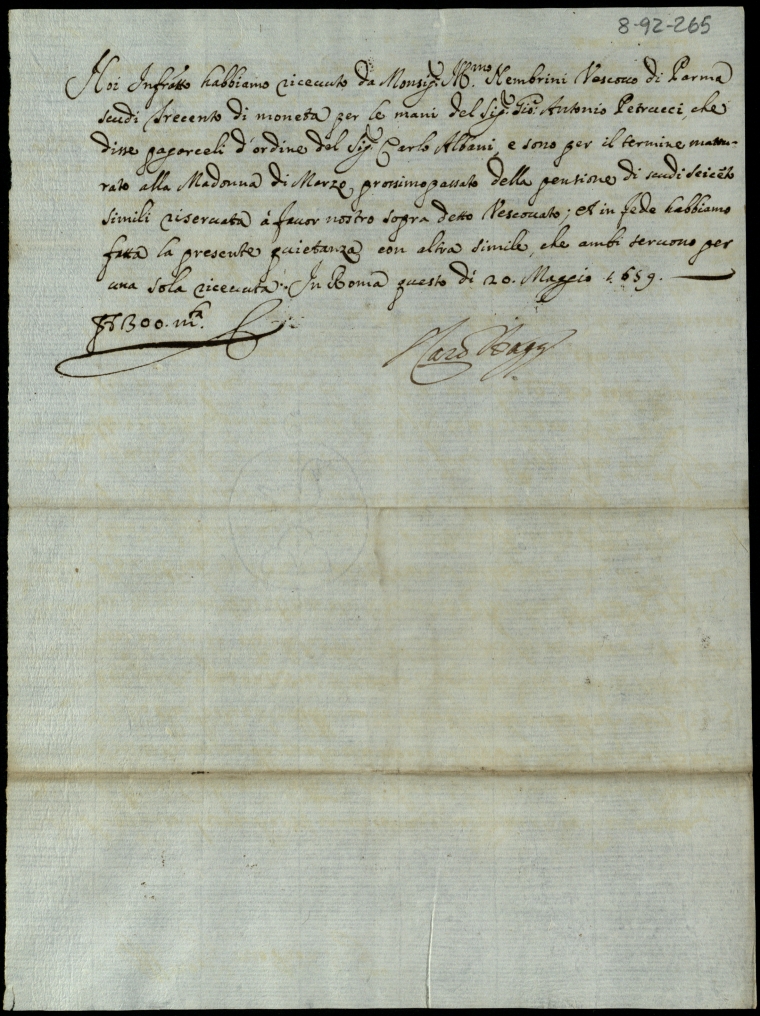 8-92-265
Noi Infr̃atto habbiamo riceuuto da Monsig.r Ill.mo Nembrini Vescouo di Parma
scudi Trecento di moneta per le mani del Sig.r Gio: Antonio Petrucci, che
disse pagarceli d'ordine del Sig.r Carlo Albani, e sono per il termine matu-
rato alla Madonna di Marzo prossimopassato della pensione di scudi seicẽto
simili riseruata à fauor nostro sopra detto Vescouato; et in fede habbiamo
fatta la presente quietanza con altra simile, che ambi seruono per
una sola riceuuta. In Roma questo dì 20. Maggio 1659.
300. m.ta
Card